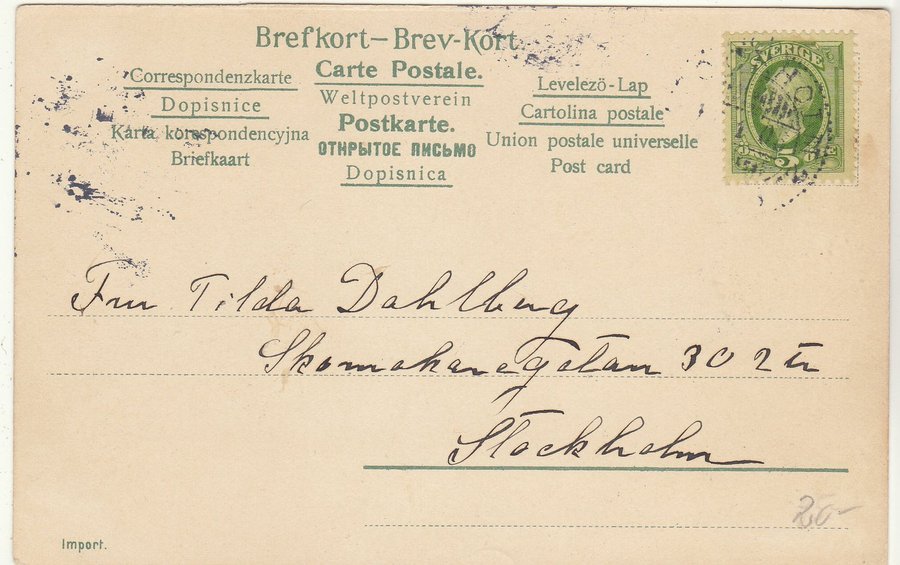 Brefkort – Brev-Kort.
Correspondenzkarte
Dopisnice
Karta korespondencyjna
Briefkaart
Carte Postale.
Weltpostverein
Postkarte.
ОТКРЫТОЕ ПИСЬМО
Dopisnica
Levelezö-Lap
Cartolina postale
Union postale universelle
Post card
SVERIGE
5
Fru Tilda Dahlberg
Skomakaregatan 30 2 tr
Stockholm
20-
Import.